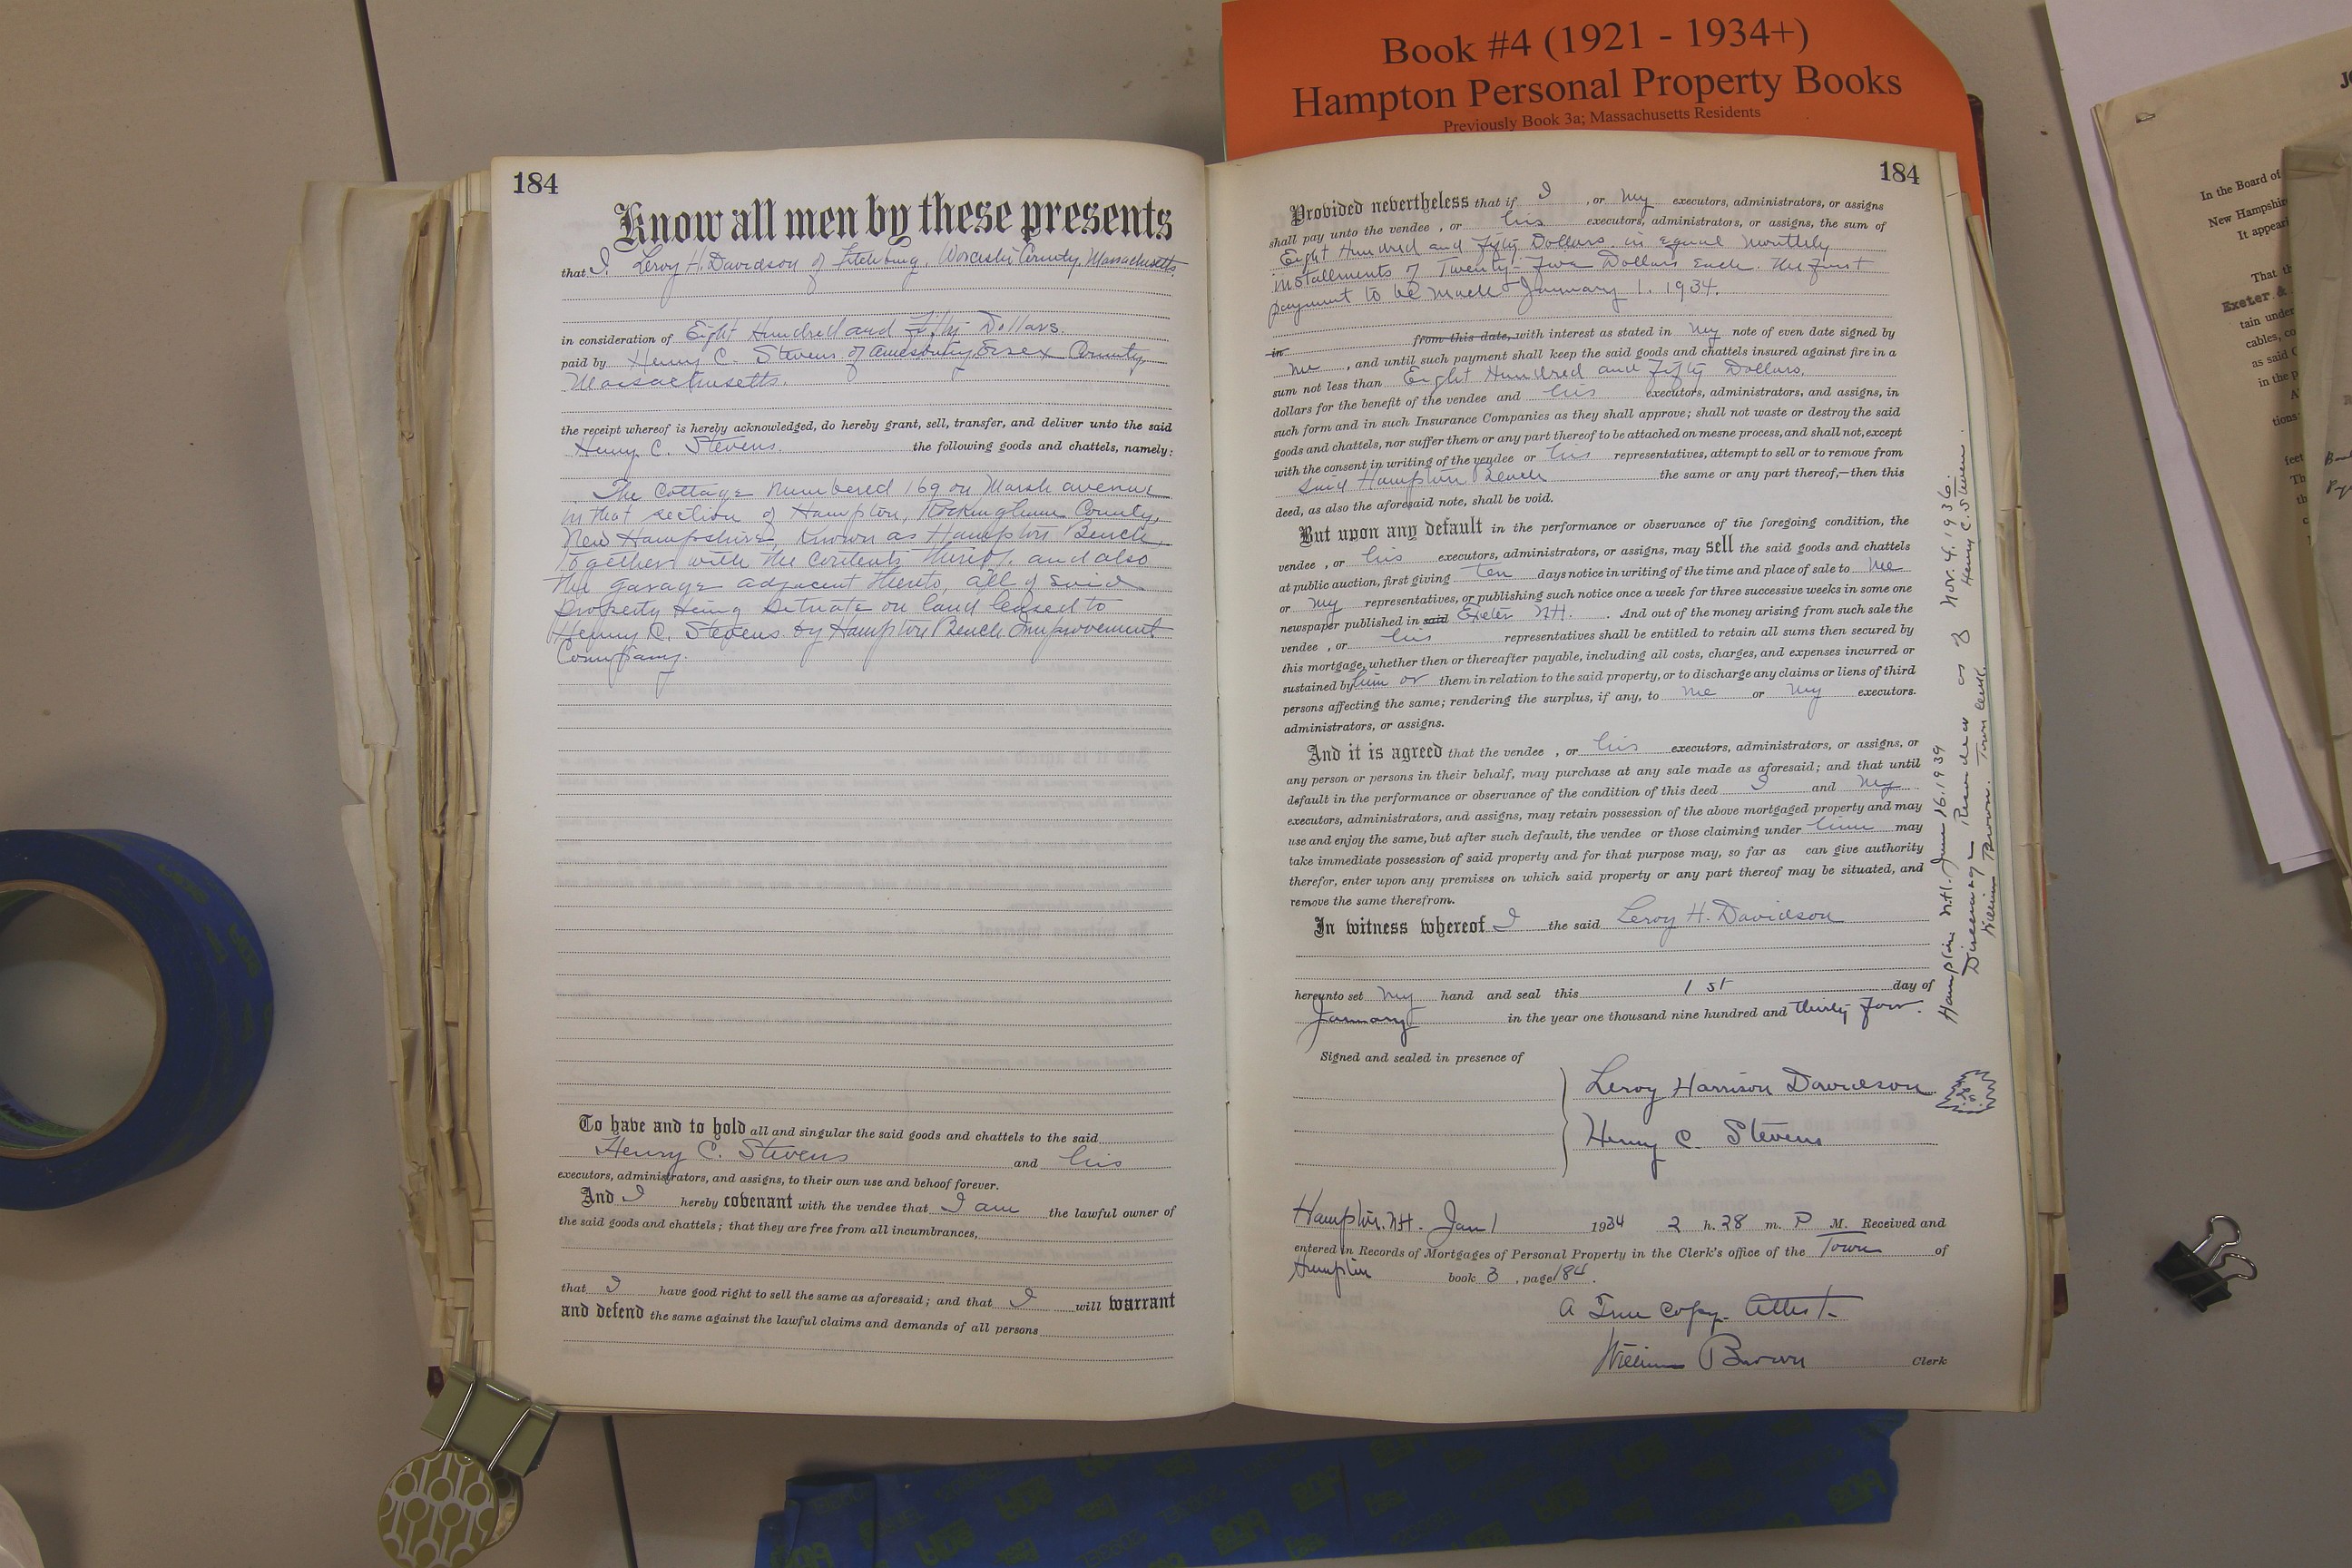 Book #4 (1921 - 1934+)
Hampton Personal Property Books
Previously Book 3a; Massachusetts Residents
184
Know all men by these presents
that I, Leroy H. Davidson of Fitchburg, Worcester County, Massachusetts
in consideration of Eight Hundred and Fifty Dollars
paid by Henry C. Stevens of Amesbury, Essex County
Massachusetts.
the receipt whereof is hereby acknowledged, do hereby grant, sell, transfer, and deliver unto the said
Henry C. Stevens. the following goods and chattels, namely:
The Cottage Numbered 169 on Marsh avenue
in that section of Hampton, Rockingham County,
New Hampshire, known as Hampton Beach,
together with the contents thereof, and also
the garage adjacent thereto, all of said
property being situate on land leased to
Henry C. Stevens by Hampton Beach Improvement
Company.
To have and to hold all and singular the said goods and chattels to the said
Henry C. Stevens and his
executors, administrators, and assigns, to their own use and behoof forever.
And I hereby covenant with the vendee that I am the lawful owner of
the said goods and chattels; that they are free from all incumbrances,
that I have good right to sell the same as aforesaid; and that I will warrant
and defend the same against the lawful claims and demands of all persons
184
Provided nevertheless that if I , or my executors, administrators, or assigns
shall pay unto the vendee , or his executors, administrators, or assigns, the sum of
Eight Hundred and Fifty Dollars. in equal monthly
installments of Twenty-Five Dollars each. The first
payment to be made January 1. 1934.
in from this date, with interest as stated in my note of even date signed by
me , and until such payment shall keep the said goods and chattels insured against fire in a
sum not less than Eight Hundred and Fifty Dollars.
dollars for the benefit of the vendee and his executors, administrators, and assigns, in
such form and in such Insurance Companies as they shall approve; shall not waste or destroy the said
goods and chattels, nor suffer them or any part thereof to be attached on mesne process, and shall not, except
with the consent in writing of the vendee or his representatives, attempt to sell or to remove from
said Hampton Beach the same or any part thereof,—then this
deed, as also the aforesaid note, shall be void.
But upon any default in the performance or observance of the foregoing condition, the
vendee , or his executors, administrators, or assigns, may sell the said goods and chattels
at public auction, first giving ten days notice in writing of the time and place of sale to me
or my representatives, or publishing such notice once a week for three successive weeks in some one
newspaper published in said Exeter N.H. . And out of the money arising from such sale the
vendee , or his representatives shall be entitled to retain all sums then secured by
this mortgage, whether then or thereafter payable, including all costs, charges, and expenses incurred or
sustained by him or them in relation to the said property, or to discharge any claims or liens of third
persons affecting the same; rendering the surplus, if any, to me or my executors.
administrators, or assigns.
And it is agreed that the vendee , or his executors, administrators, or assigns, or
any person or persons in their behalf, may purchase at any sale made as aforesaid; and that until
default in the performance or observance of the condition of this deed I and my
executors, administrators, and assigns, may retain possession of the above mortgaged property and may
use and enjoy the same, but after such default, the vendee or those claiming under him may
take immediate possession of said property and for that purpose may, so far as can give authority
therefor, enter upon any premises on which said property or any part thereof may be situated, and
remove the same therefrom.
In witness whereof I the said Leroy H. Davidson
hereunto set my hand and seal this 1st day of
January in the year one thousand nine hundred and thirty four.
Signed and sealed in presence of
Leroy Harrison Davidson L.S.
Henry C. Stevens
Hampton. N.H. Jan 1 1934 2 h. 28 m. P M. Received and
entered in Records of Mortgages of Personal Property in the Clerk's office of the Town of
Hampton book 3 , page 184.
A True Copy. Attest.
William Brown Clerk
Hampton N.H. June 16. 1939
Discharge Recorded as of Nov. 4. 1936.
William Brown. Town Clerk. Henry C. Stevens.
In the Board of
New Hampshire
It appear
That th
Exeter &
tain under
cables, co
as said
in the p
tions
feet